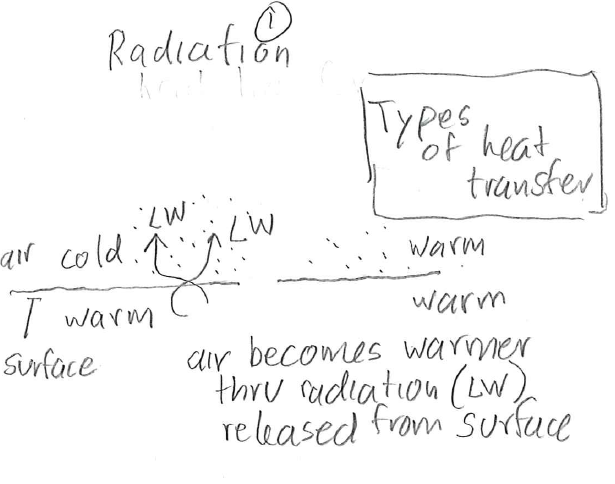 1
Radiation
Types
of heat
transfer
LW LW
air cold
warm
surface
warm
warm
air becomes warmer
thru radiation (LW)
released from surface